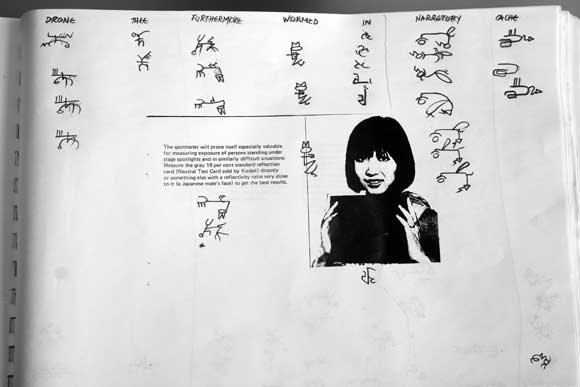 DRONE THEE FURTHERMORE WORMED IN NARRATORY CACHE
The spotmeter will prove itself especially valuable
for measuring exposure of persons standing under
stage spotlights and in similarly difficult situations.
Measure the gray 18 per cent standard reflection
card (Neutral Test Card sold by Kodak) directly
or something else with a reflectivity ratio very close
to it (a Japanese male's face) to get the best results.